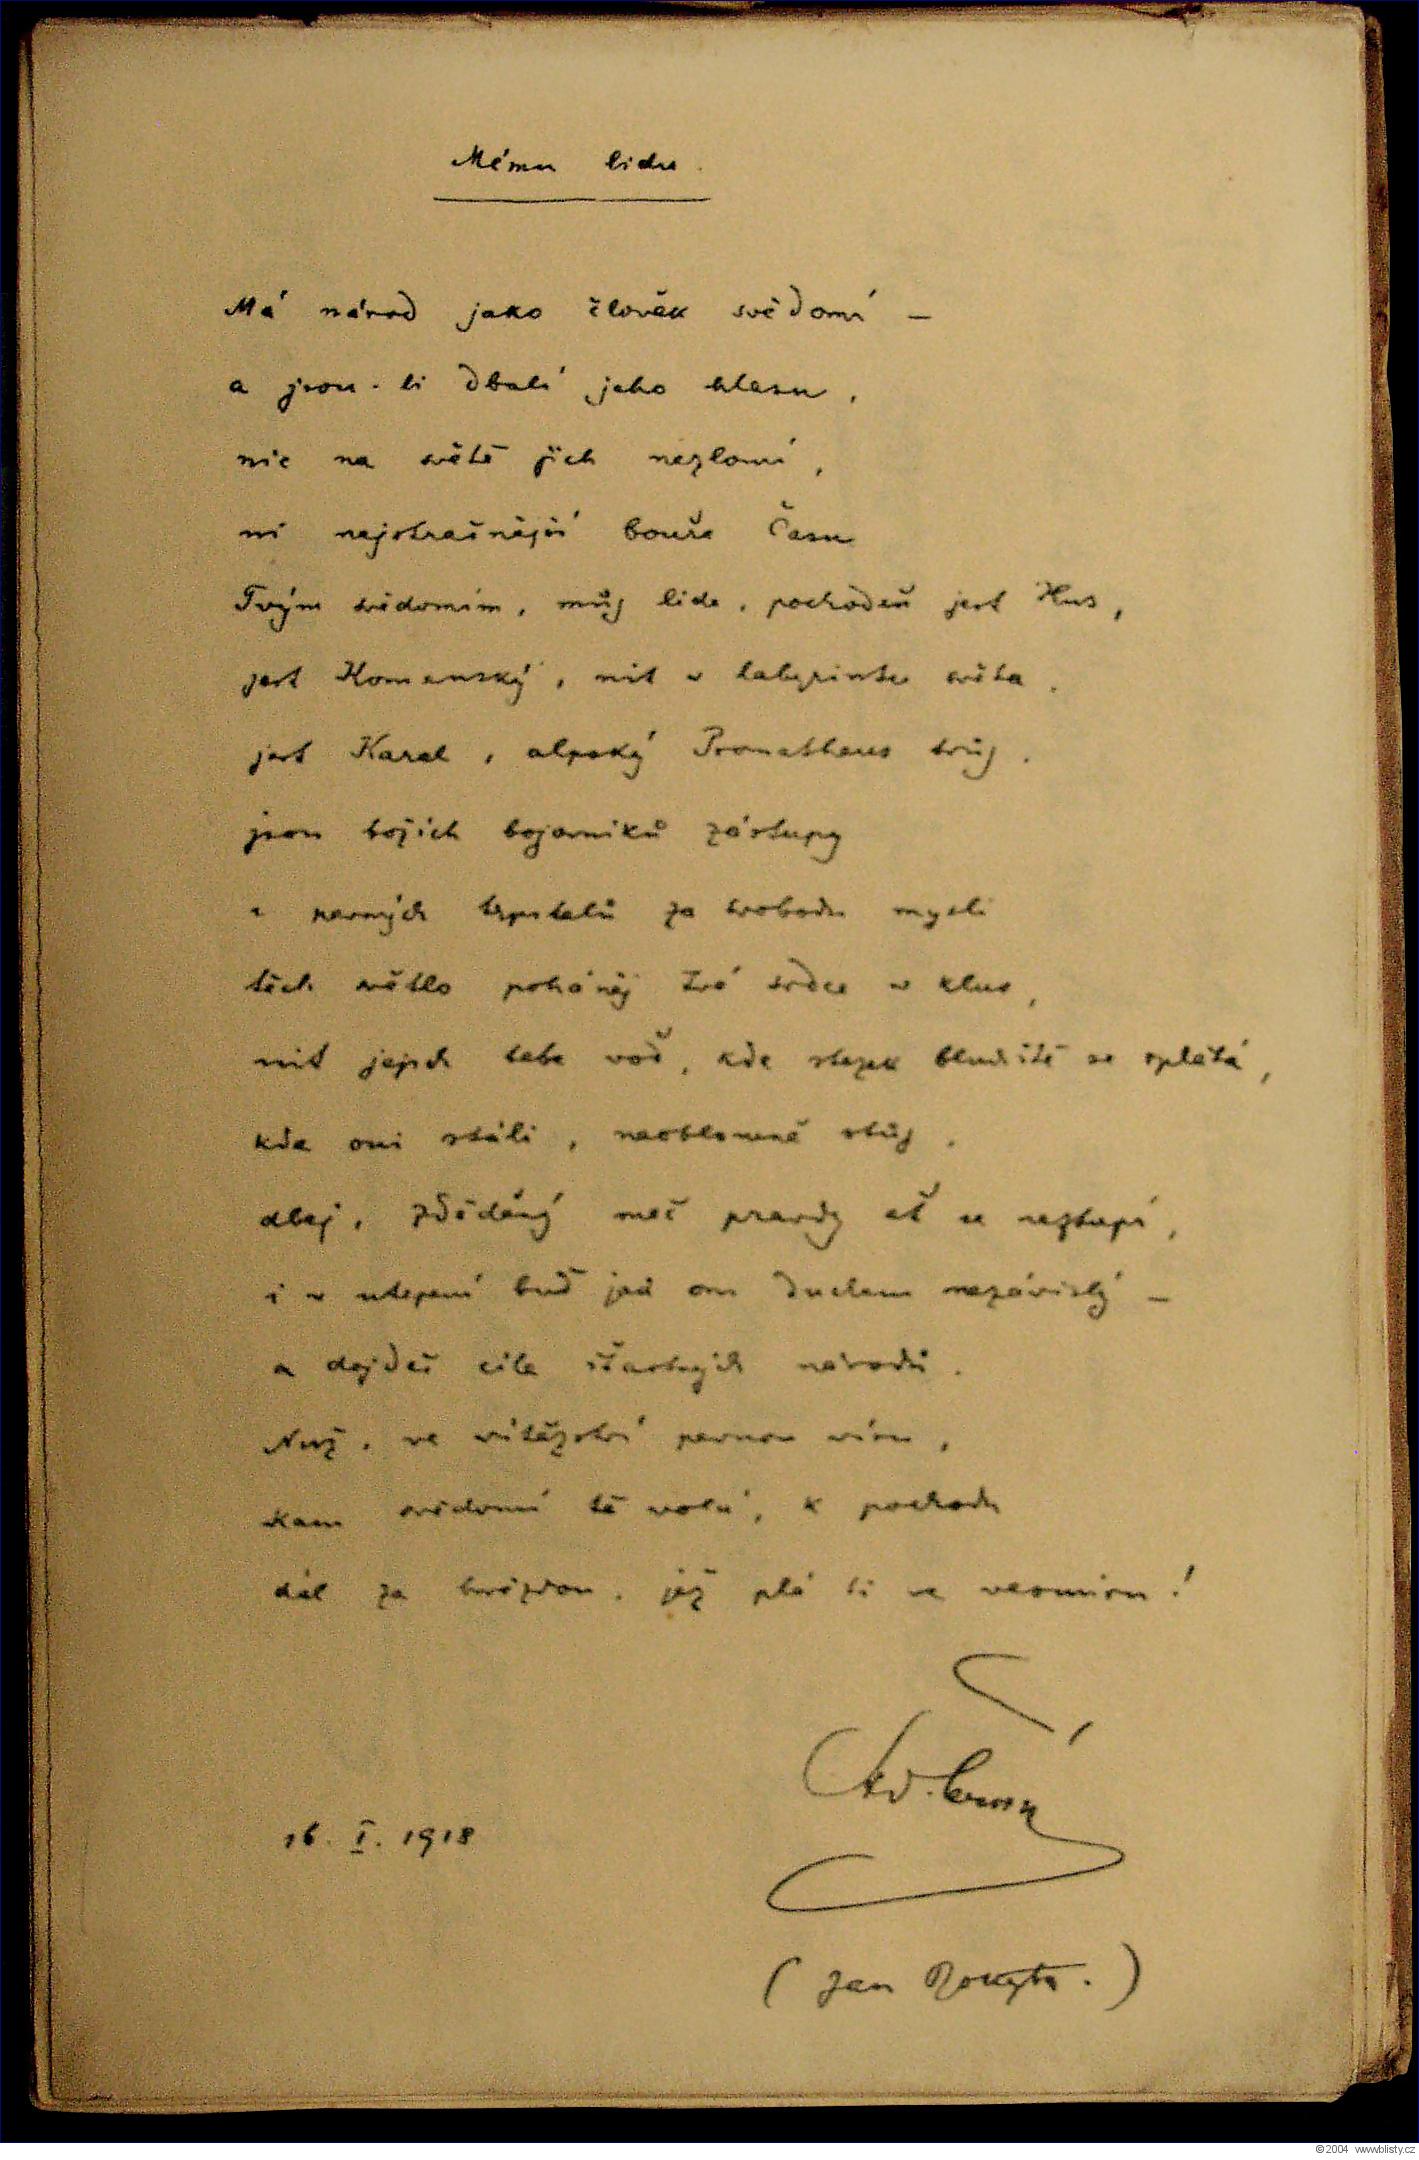 Mému lidu.
Má národ jako člověk svědomí –
a jsou-li dbalí jeho hlasu,
nic na světě jich nezlomí,
ni nejstrašnější bouře času
Tvým svědomím, můj lide, pochodeň jest Hus,
jest Komenský, nit v labyrintu světa,
jest Karel, alpský Prometheus tvůj,
jsou božích bojovníků zástupy
a pevných trpitelů za svobodu mysli
těch světlo poháněj tvé srdce v klus,
nit jejich tebe voď, kde stezek bludiště se splétá,
kde oni stáli, neoblomně stůj,
dbej, zděděný meč pravdy ať se neztupí,
i v utrpení buď jak oni duchem nezávislý –
a dojdeš cíle šťastných národů.
Nuž, ve vítězství pevnou víru,
kam svědomí tě volá, k pochodu
dál za hvězdou, jež plá ti ve vesmíru!
16. I. 1918
Ad. Černý
(Jan Rokyta.)
©2004 www.blisty.cz